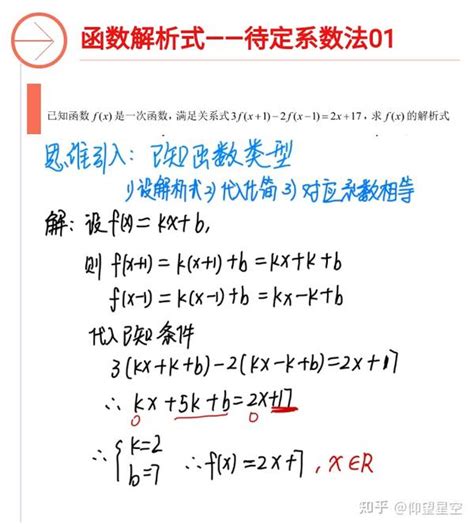 函数解析式——待定系数法01
已知函数 f(x) 是一次函数，满足关系式3f(x+1)-2f(x-1)=2x+17，求 f(x) 的解析式
思维引入：已知函数类型
1)设解析式 2)代入化简 3)对应系数相等
解：设f(x)=kx+b,
则 f(x+1)=k(x+1)+b=kx+k+b
f(x-1)=k(x-1)+b=kx-k+b
代入已知条件
3(kx+k+b)-2(kx-k+b)=2x+17
∴ kx+5k+b=2x+17
∴{k=2
b=7 ∴f(x)=2x+7，x∈R
知乎 @仰望星空